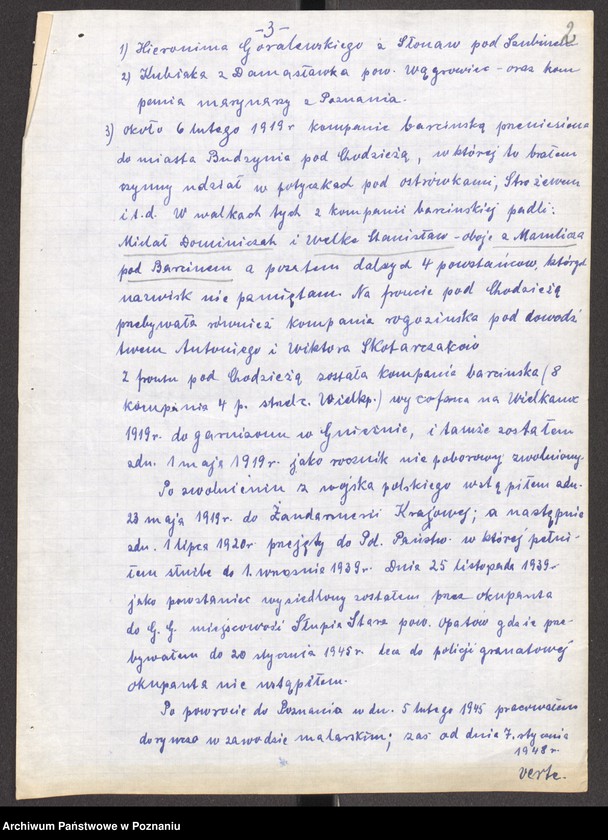 -3-
2
1) Hieronima Góralewskiego z Słonaw pod Szubinem
2) Kubiaka z Damasławka pow. Wągrowiec - oraz kom
pania marynarzy z Poznania.
3) około 6 lutego 1919 r kompanie barcińską przeniesiono
do miasta Budzynia pod Chodzieżą, w której to brałem
czynny udział w potyczkach pod ostrówkami, Strożewem
i t.d. W walkach tych z kompanii barcińskiej padli:
Michał Dominiczak i Welke Stanisław - oboje z Mamlicza
pod Barcinem a pozatem dalszych 4 powstańców, których
nazwisk nie pamiętam. Na froncie pod Chodzieżą
przebywała również kompania rogozińska pod dowódz
twem Antoniego i Wiktora Skotarczaków
Z frontu pod Chodzieżą została kompania barcińska (8
kompania 4 p. strzelc. Wielkp.) wycofana na Wielkanoc
1919 r. do garnizonu w Gnieźnie, i tamże zostałem
zdn. 1 maja 1919 r. jako rocznik nie poborowy zwolniony.
Po zwolnieniu z wojska polskiego wstąpiłem zdn.
23 maja 1919 r. do Żandarmerii Krajowej; a następnie
zdn. 1 lipca 1920 r. przejęty do Pol. Państw. w której pełni-
łem służbę do 1. września 1939 r. Dnia 25 listopada 1939 r
jako powstaniec wysiedlony zostałem przez okupanta
do G. G. miejscowość Słupia Stara pow. Opatów gdzie prze
bywałem do 20 stycznia 1945 r. lecz do policji granatowej
okupanta nie wstąpiłem.
Po powrocie do Poznania w dn. 5 lutego 1945 pracowałem
dorywczo w zawodzie malarskim; zaś od dnia 7. stycznia
1948 r.
verte.
Archiwum Państwowe w Poznaniu